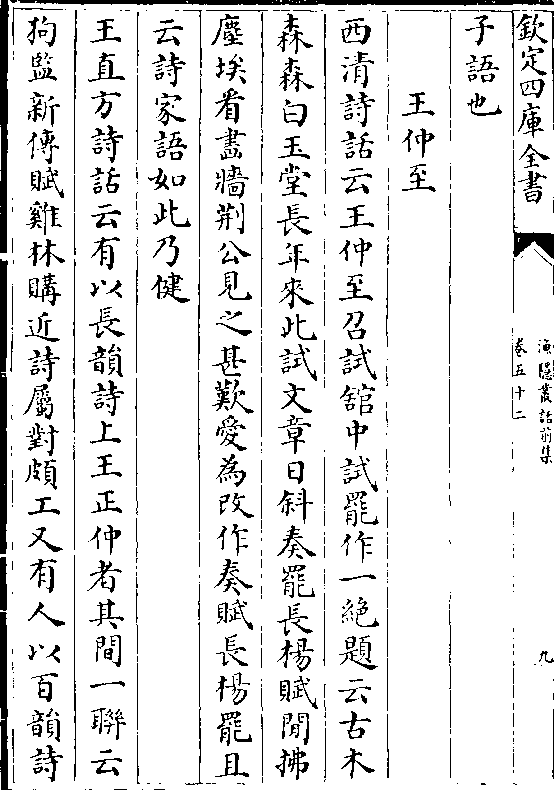 欽定四庫全書
漁隱叢話前集
卷五十二
九
子語也
王仲至
西清詩話云王仲至召試舘中試罷作一絶題云古木
森森白玉堂長年來此試文章日斜奏罷長楊賦閒拂
塵埃看畫牆荆公見之甚歎愛為改作奏賦長楊罷且
云詩家語如此乃健
王直方詩話云有以長韻詩上王正仲者其間一聯云
狗監新傳賦雞林購近詩屬對頗工又有人以百韻詩